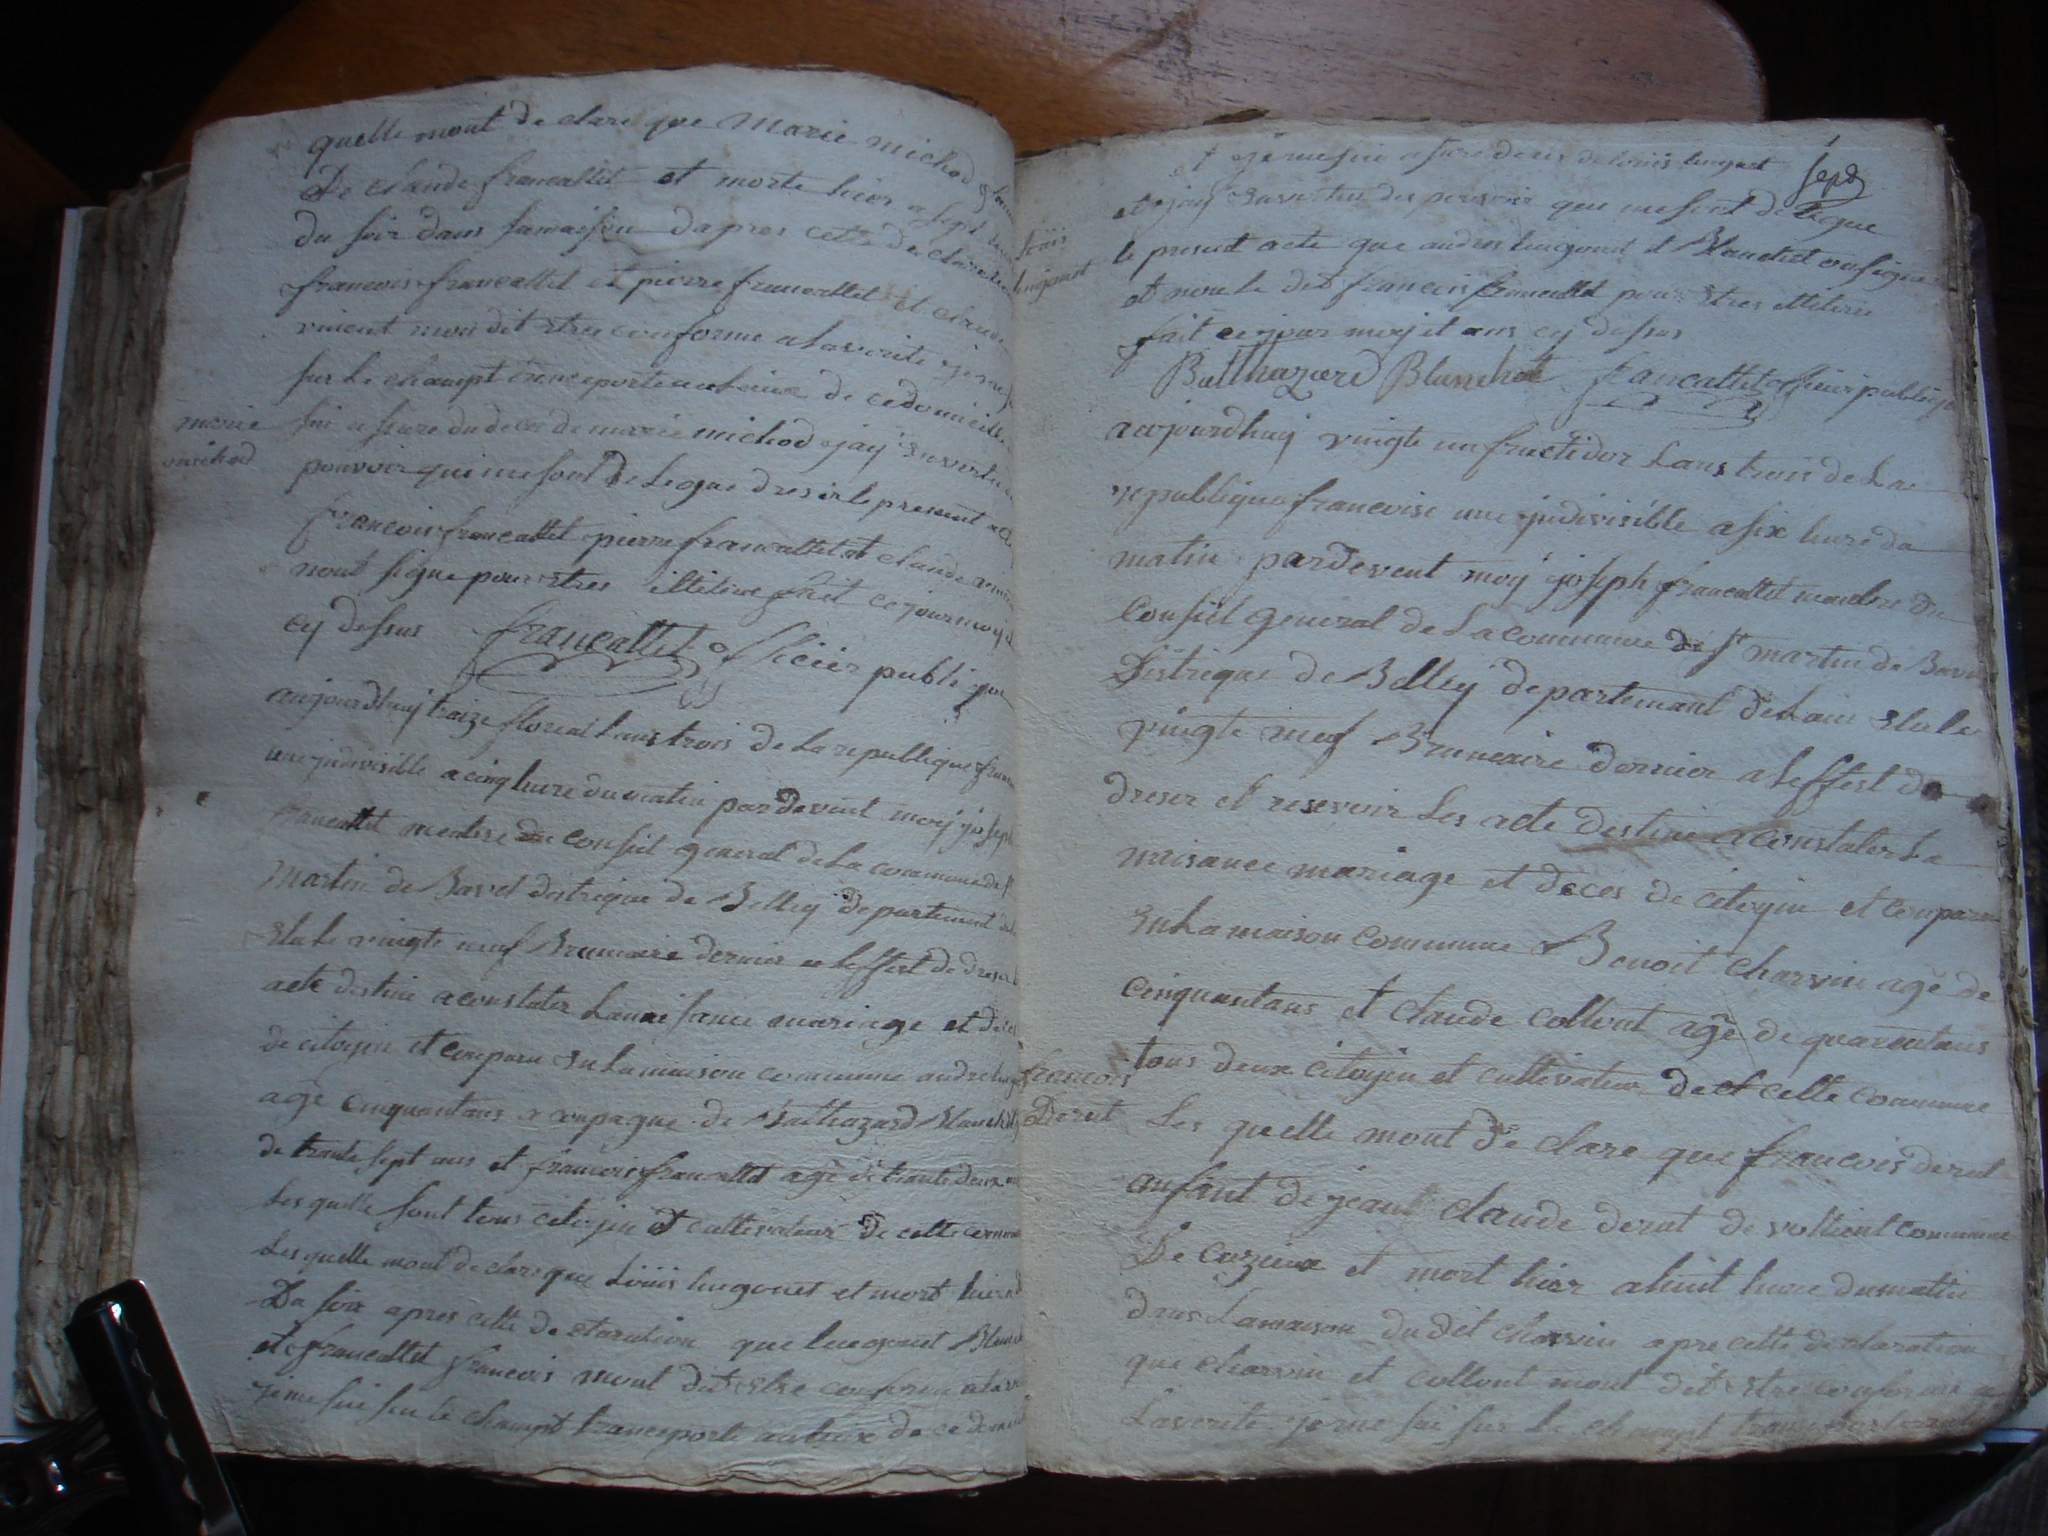 quelle mont de clare que Marie michod
De claude francallet et morte hier a sept
du soir dans samaison dapres cette de claration
francois francallet et pierre francallet et claude
vincent mon dit etre conforme a laverite je me
sur le champt transeporte aulieux de ce domicille
marie
michod
sui asure du deces de marie michod jay en vertu
pouvoir qui me sont de legue dresir le present acte
francois francallet pierre francallet et claude
nont signe pour etres illitire fait ce jour moy
cy dessus francallet officier publique
aujourdhuy traize floreal lans trois de la republique
une jndivisible a cinq heure du matin pardevent moy joseph
francallet menbre du consiel general de la commune de st
martin de Bavel distrique de Belley departement
elu le vingte neuf Brumaire dernier a leffest de dreser
acte destine a constater la nai sance mariage et deces
de citoyin et comparu en la maison commune andre
age cinquantans a compagne de Balthazard Blanchet
de trante sept ans et francois francallet age de trante deux ans
Les quelle sont tous citoyin et cultivateur de cette commune
Les quelle mont de clare que Loüis lingonet et mort hier
Du soir apres cette de claration que lingonet Blanchet
et francallet francois mont dit etre conforme alave
je me sui sur le champt transeporte aulieux de ce domi
sepd
je me sui asure deces de loüis
et jay en vertu du pouvoir que me sont de legue
Loüis
lingonet
le present acte que andre lingonet et Blanchet on signe
et non le dit francois francallet pour etres illitire
fait ce jour moy et ans cy dessus
Balthazard Blanchet francallet officier publique
aujourdhuy vingte un fructidor Lans trois de La
republique francoise une jndivisible a six heure du
matin pardevent moy joseph francallet menbre du
Consiel general de La commune de st martin de Bavel
Distrique de Belley departemant de Lain elu le
vingte neuf Brumaire dernier a leffest de
dreser et resevoir Les acte destine a constater La
naisance mariage et deces de citoyin et comparu
en La maison commune Benoit charvin age de
cinquantans et claude collout age de quarentans
francois
Derut
tous deux citoyin et cultivateur de et cette commune
Les quelle mont de clare que francois derut
anfant de jeant claude derut de vollient commune
De cuzieux et mort hier a huit heure du matin
dans La maison du dit charvin apre cette declaration
que charvin et collout mont dit etre conforme a
Laverite je me sui sur Le champt